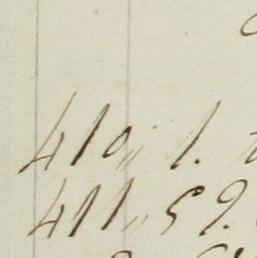 410 „ 1.
411 „ 59.